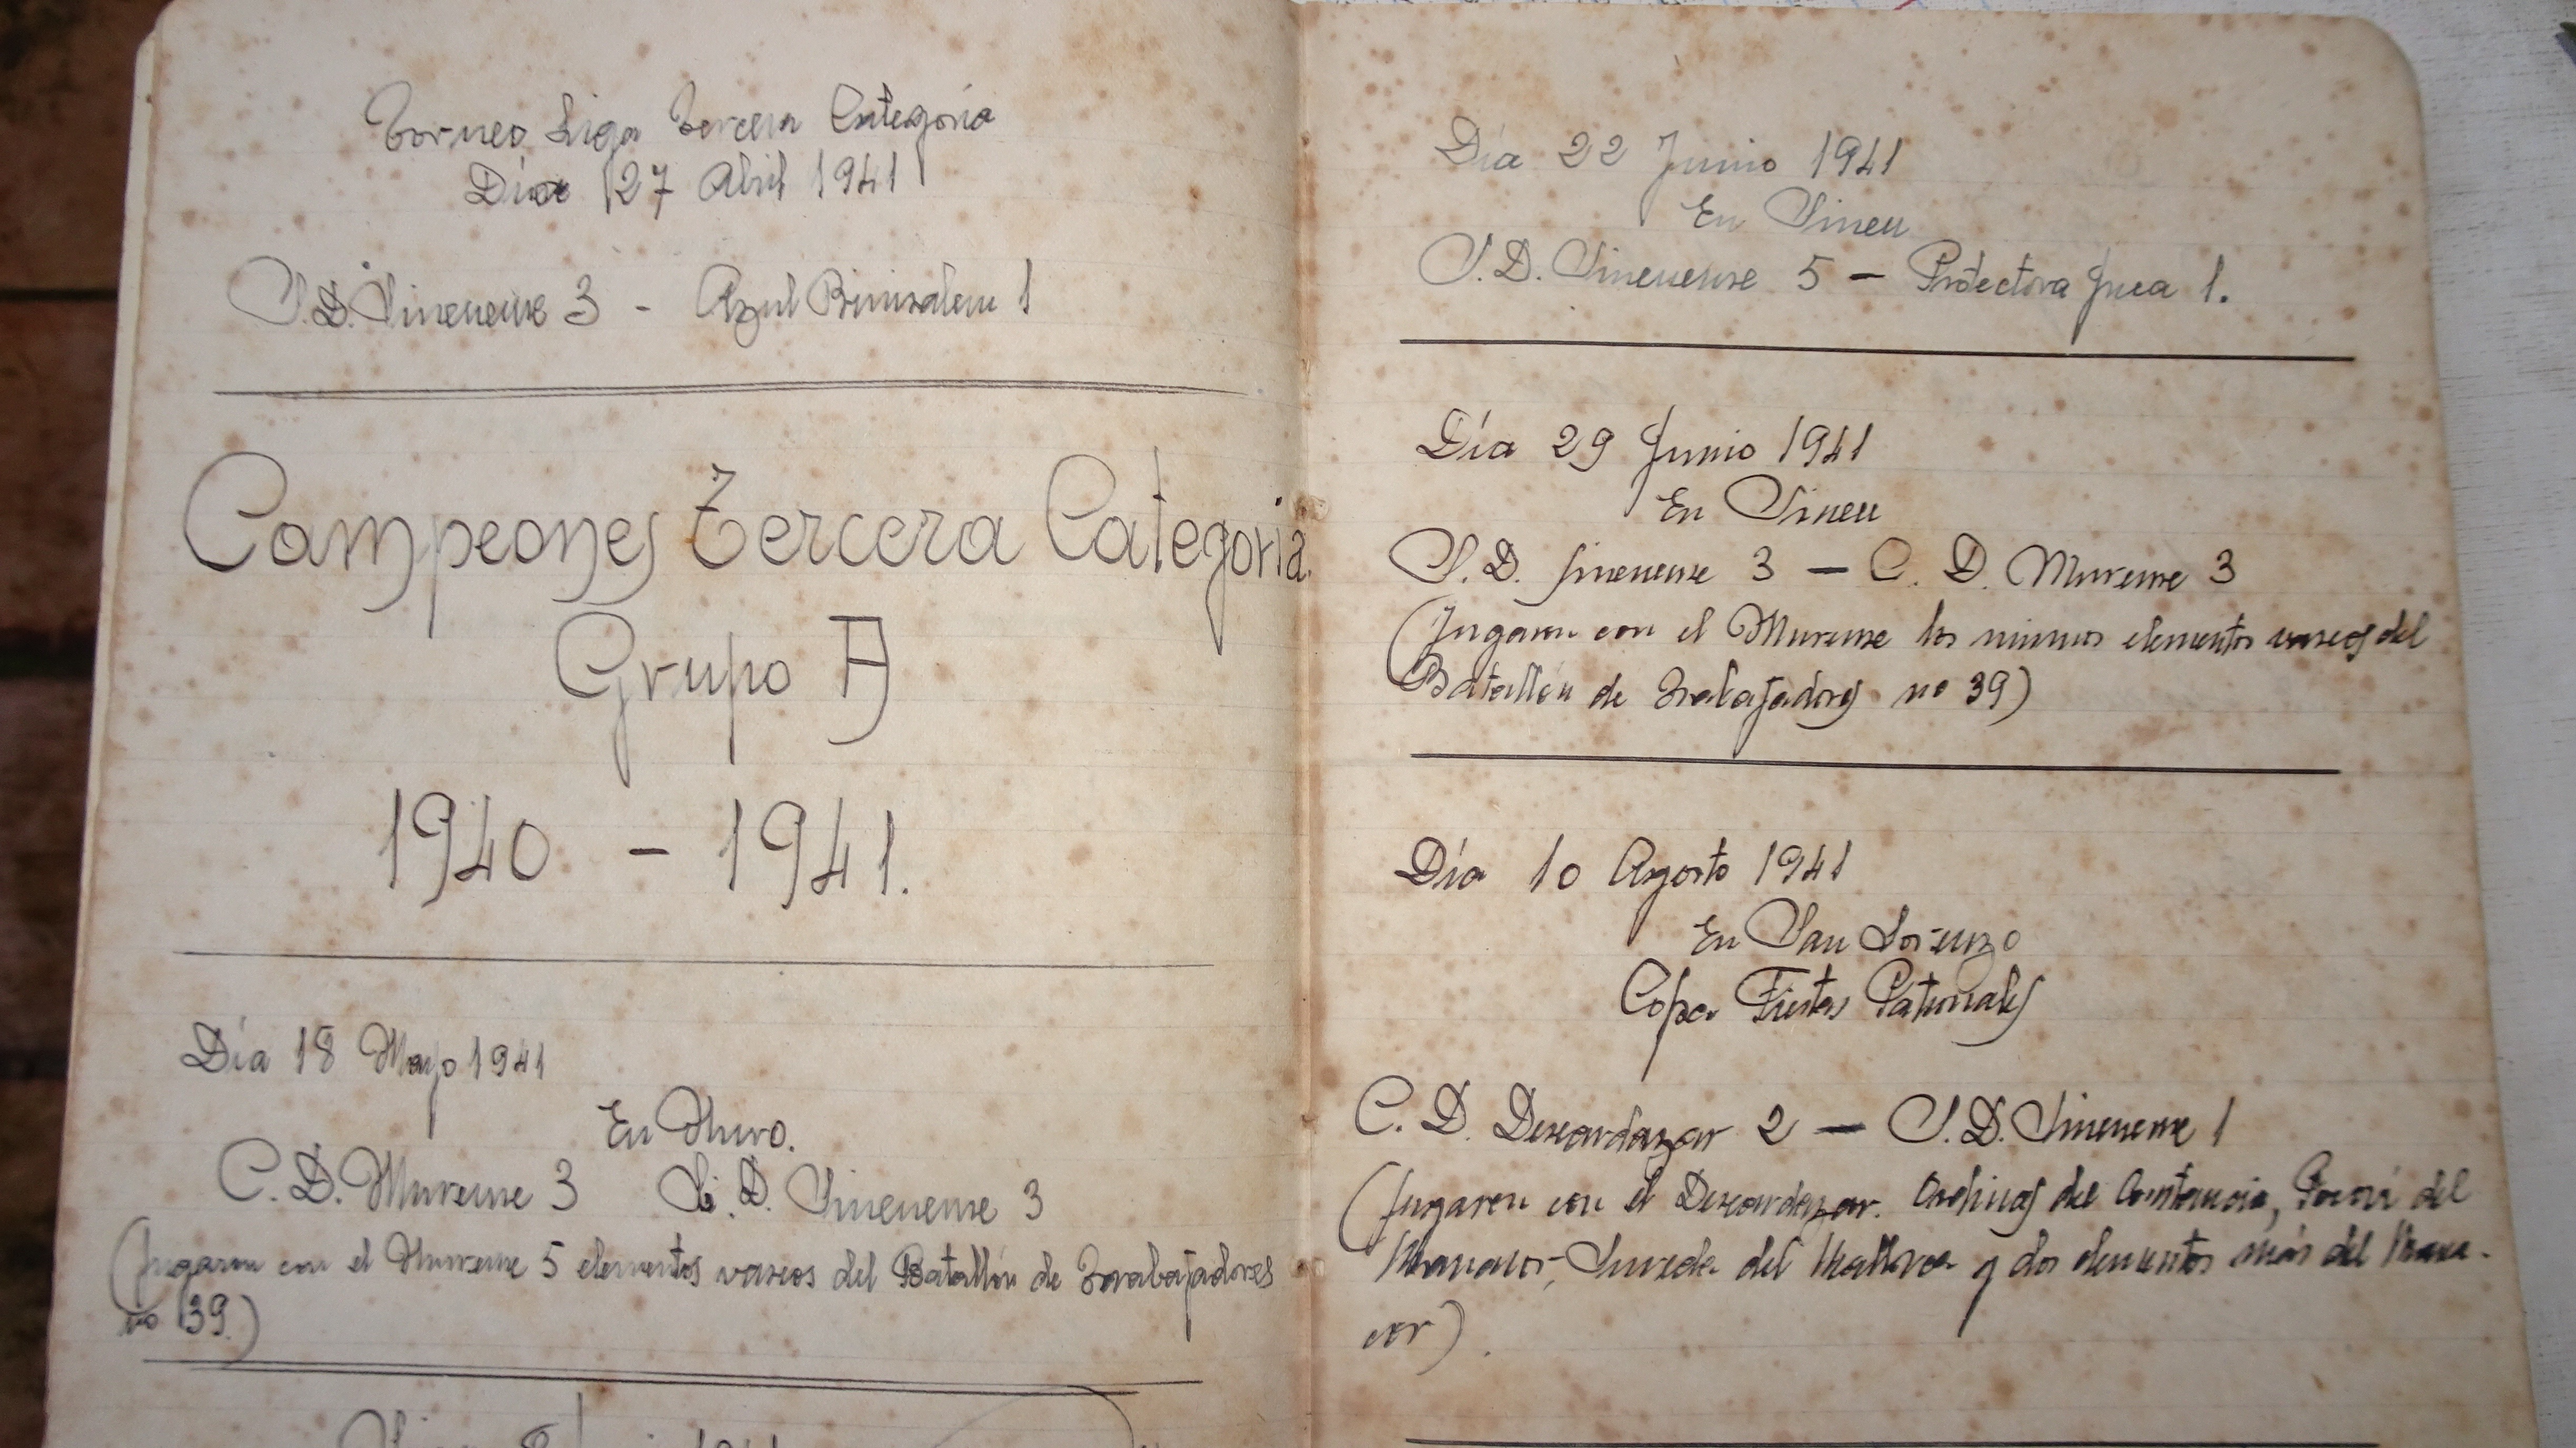 Torneo Liga Tercera Categoría
Día 27 Abril 1941
S.D. Sineuense 3 - Azul Binisalem 1
Campeones Tercera Categoria.
Grupo A
1940 - 1941.
Día 18 Mayo 1941
En Muro.
C.D. Murense 3 S.D. Sineuense 3
(Jugaron con el Murense 5 elementos vascos del Batallón de Trabajadores
no 39.)
1941
Día 22 Junio 1941
En Sineu
S.D. Sineuense 5 - Protectora Inca 1.
Día 29 Junio 1941
En Sineu
S.D. Sineuense 3 - C.D. Murense 3
(Jugaron con el Murense los mismos elementos vascos del
Batallón de Trabajadores no 39)
Día 10 Agosto 1941
En San Lorenzo
Copa Fiestas Patronales
C.D. Descardazar 2 - S.D. Sineuense 1
(Jugaron con el Descardazar. Ordinas del Constancia, del
Manacor, del Mallorca y dos elementos más del Mana-
cor).